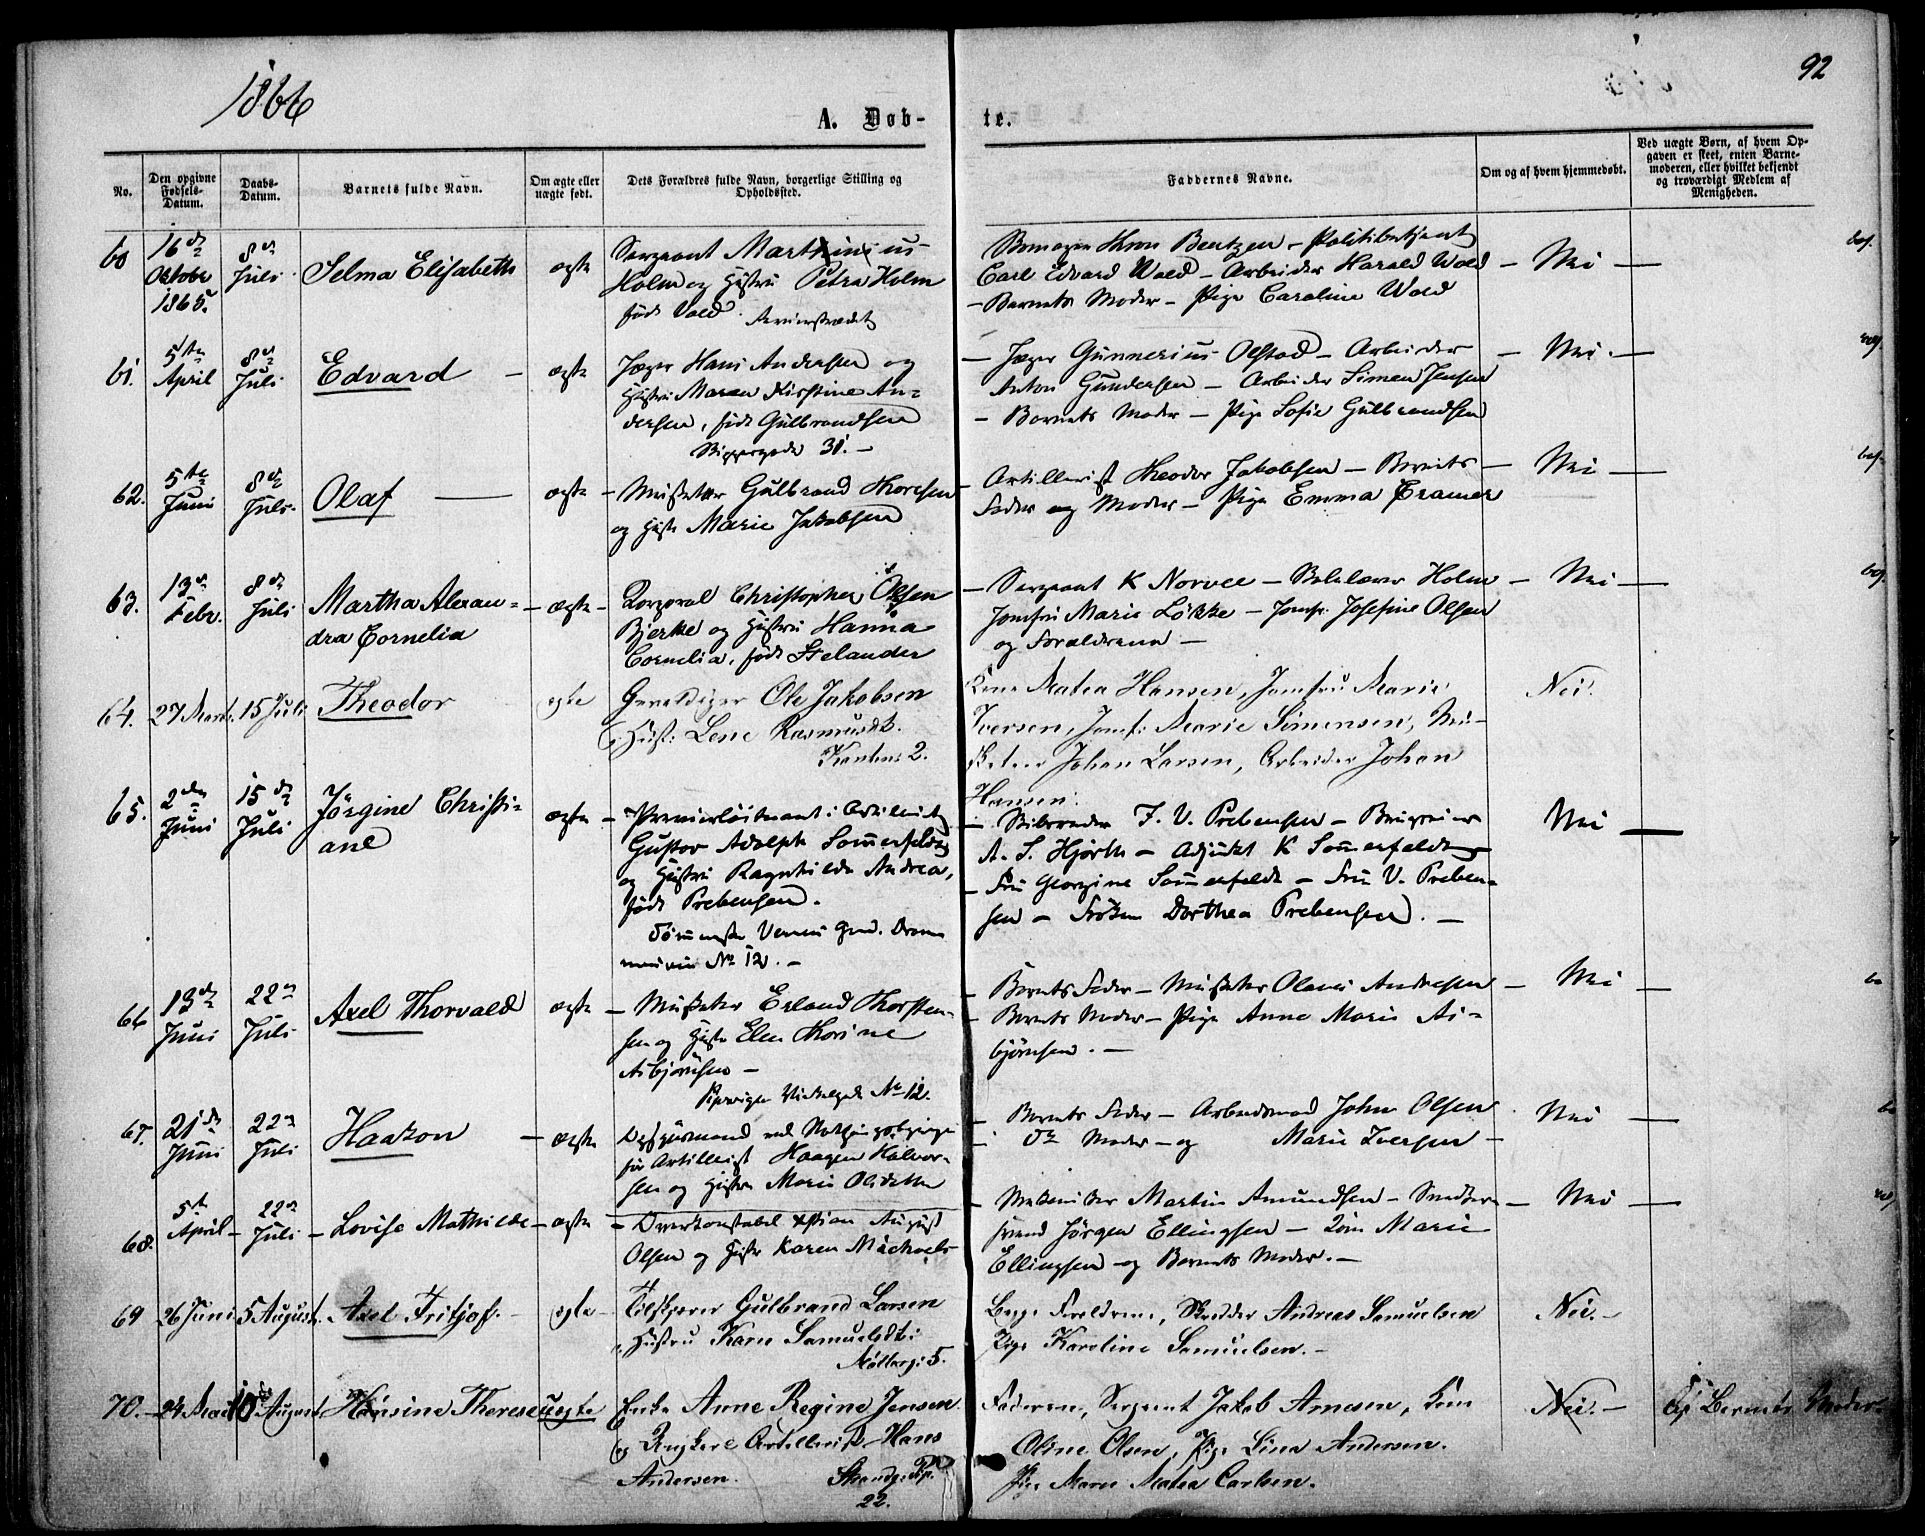 1866
92
A. Døb-
te.
No.
Den opgivne Fødsels-Datum.
Daabs-Datum.
Barnets fulde Navn.
Om ægte eller uægte født.
Dets Forældres fulde Navn, borgerlige Stilling og Opholdssted.
Faddernes Navne.
Om og af hvem hjemmedøbt.
Ved uægte Børn, af hvem Opgaven er skeet, enten Barnemoderen, eller hvilket bekjendt og troværdigt Medlem af Menigheden.
60 16de Oktobr 1865. 8de Juli Selma Elisabeth ægte
Sergeant Marthinius
Holm og Hustru Petra Holm
født Vold.
Bentzen – Politibetjent
Carl Edvard Wold – Arbeider Harald Wold – Nei –
– Barnets Moder – Pige Caroline Wold
61. 5te April 8de Juli Edvard – ægte
Jæger Hans Andersen og
Hustru Maren Kirstine An-
dersen, født Gulbrandsen
31. –
– Jæger Gunnerius Olstad – Arbeider – Nei. –
Anton Gundersen – Arbeider Simen Jensen
– Barnets Moder – Pige Sofie Gulbrandsen
62. 5te Juni 8de Juli. Olaf – ægte
– Musketer Gulbrand Thoresen
og Hustr Marie Jakobsen
– Artillerist Theodor Jakobsen – Barnets – Nei –
Fader og Moder – Pige Emma Cramer
63. 13de Febr. 8de Juli Martha Alexan-
dra Cornelia – ægte –
Korporal Christopher Olsen
Bjerke og Hustru Hanna
Cornelia, født Stelander
– Sergeant K Norvee – Holm – Nei –
Jomfru Marie Løkke – Jomfr. Josefine Olsen
og Forældrene –
64. 27 Marts 15 Juli Theodor ægte
Gevaldiger Ole Jakobsen
og Hust: Lene Rasmusdt.
2.
Kone Matea Hansen, Jomfru Marie Nei.
Iversen, Jomf: Marie Simensen, Mu-
sketeer Johan Larsen, Arbeider Johan
Hansen.
65. 2den Juni 15de Juli Jørgine Christi-
ane ægte
– Premierløitnant i Artilleriet
Gustav Adolph Sommerfeldt
og Hustru Ragnhilde Andrea,
født Prebensen.
No 12. –
– F. V. Prebensen –
A. S. Hjorth – Adjunkt K Sommerfeldt Nei –
– Fru Georgine Sommerfeldt – Fru V. Preben-
sen – Frøken Dorthea Prebensen. –
66 13de Juni 22de Juli Axel Thorvald ægte
– Musketer Erland Thorsten-
sen og Hustr Elen Thorine
Asbjørnsen –
Pipervigen No 12.
– Barnets Fader – Musketer Olaves Andresen – Nei –
– Barnets Moder – Pige Anne Marie As-
bjørnsen. –
67. 21de Juni 22de Juli Haakon – ægte
Opsynsmand ved
for Artillerist Haagen Halvor-
sen og Hustru Marie
– Barnets Fader – Arbeidsmand John Olsen Nei –
– Do Moder – og Marie Iversen –
68. 5te April – 22de Juli – Lovise Mathilde – ægte
– Overkonstabel Kristian August
Olsen og Hustr Karen Michaels-
– Martin Amundsen – Nei –
svend Jørgen Ellingsen – Marie
Ellingsen – og Barnets Moder. –
69 26 Juni 5 August. Axel Fritjof. – ægte –
Tilskjærer Gulbrand Larsen
og Hustru Karen Samuelsdt:
Møllerg: 5.
Begge Forældrene, Skrædder Andreas Samuelsen Nei. –
Pige Karoline Samuelsen. –
70. – 10de August Hansine Therese uægte
Enke Anne Regine Jensen
og Ungkarl Artillerist Hans
Andersen.
22.
Faderen, Sergeant Jakob Arnesen, Kone Nei. – Af Barnets Moder.
Oline Olsen, Pige Lina Andersen.
Pige Maren Matea Carlsen.